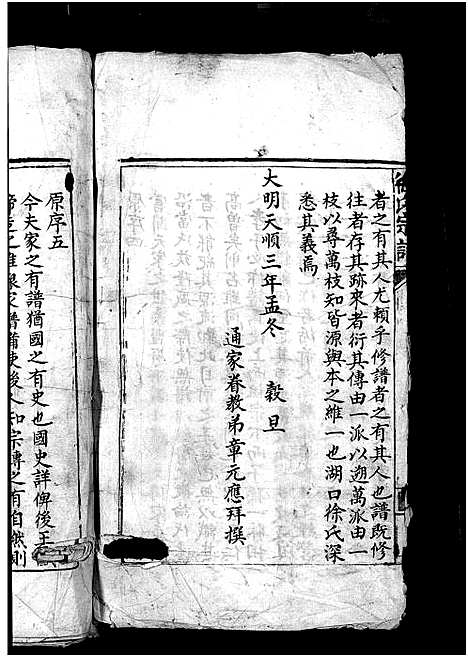 徐氏宗譜
者之有其人尤賴乎修譜者之有其人也譜既修
往者存其跡來者衍其傳由一派以遡萬派由一
枝以尋萬枝知皆源與本之維一也湖口徐氏深
悉其義焉
大明天順三年孟冬 穀旦
通家眷教弟章元應拜撰
原序五
今夫家之有譜猶國之有史也國史詳俾後王
之維良家譜備使後人知宗傳之有自然則